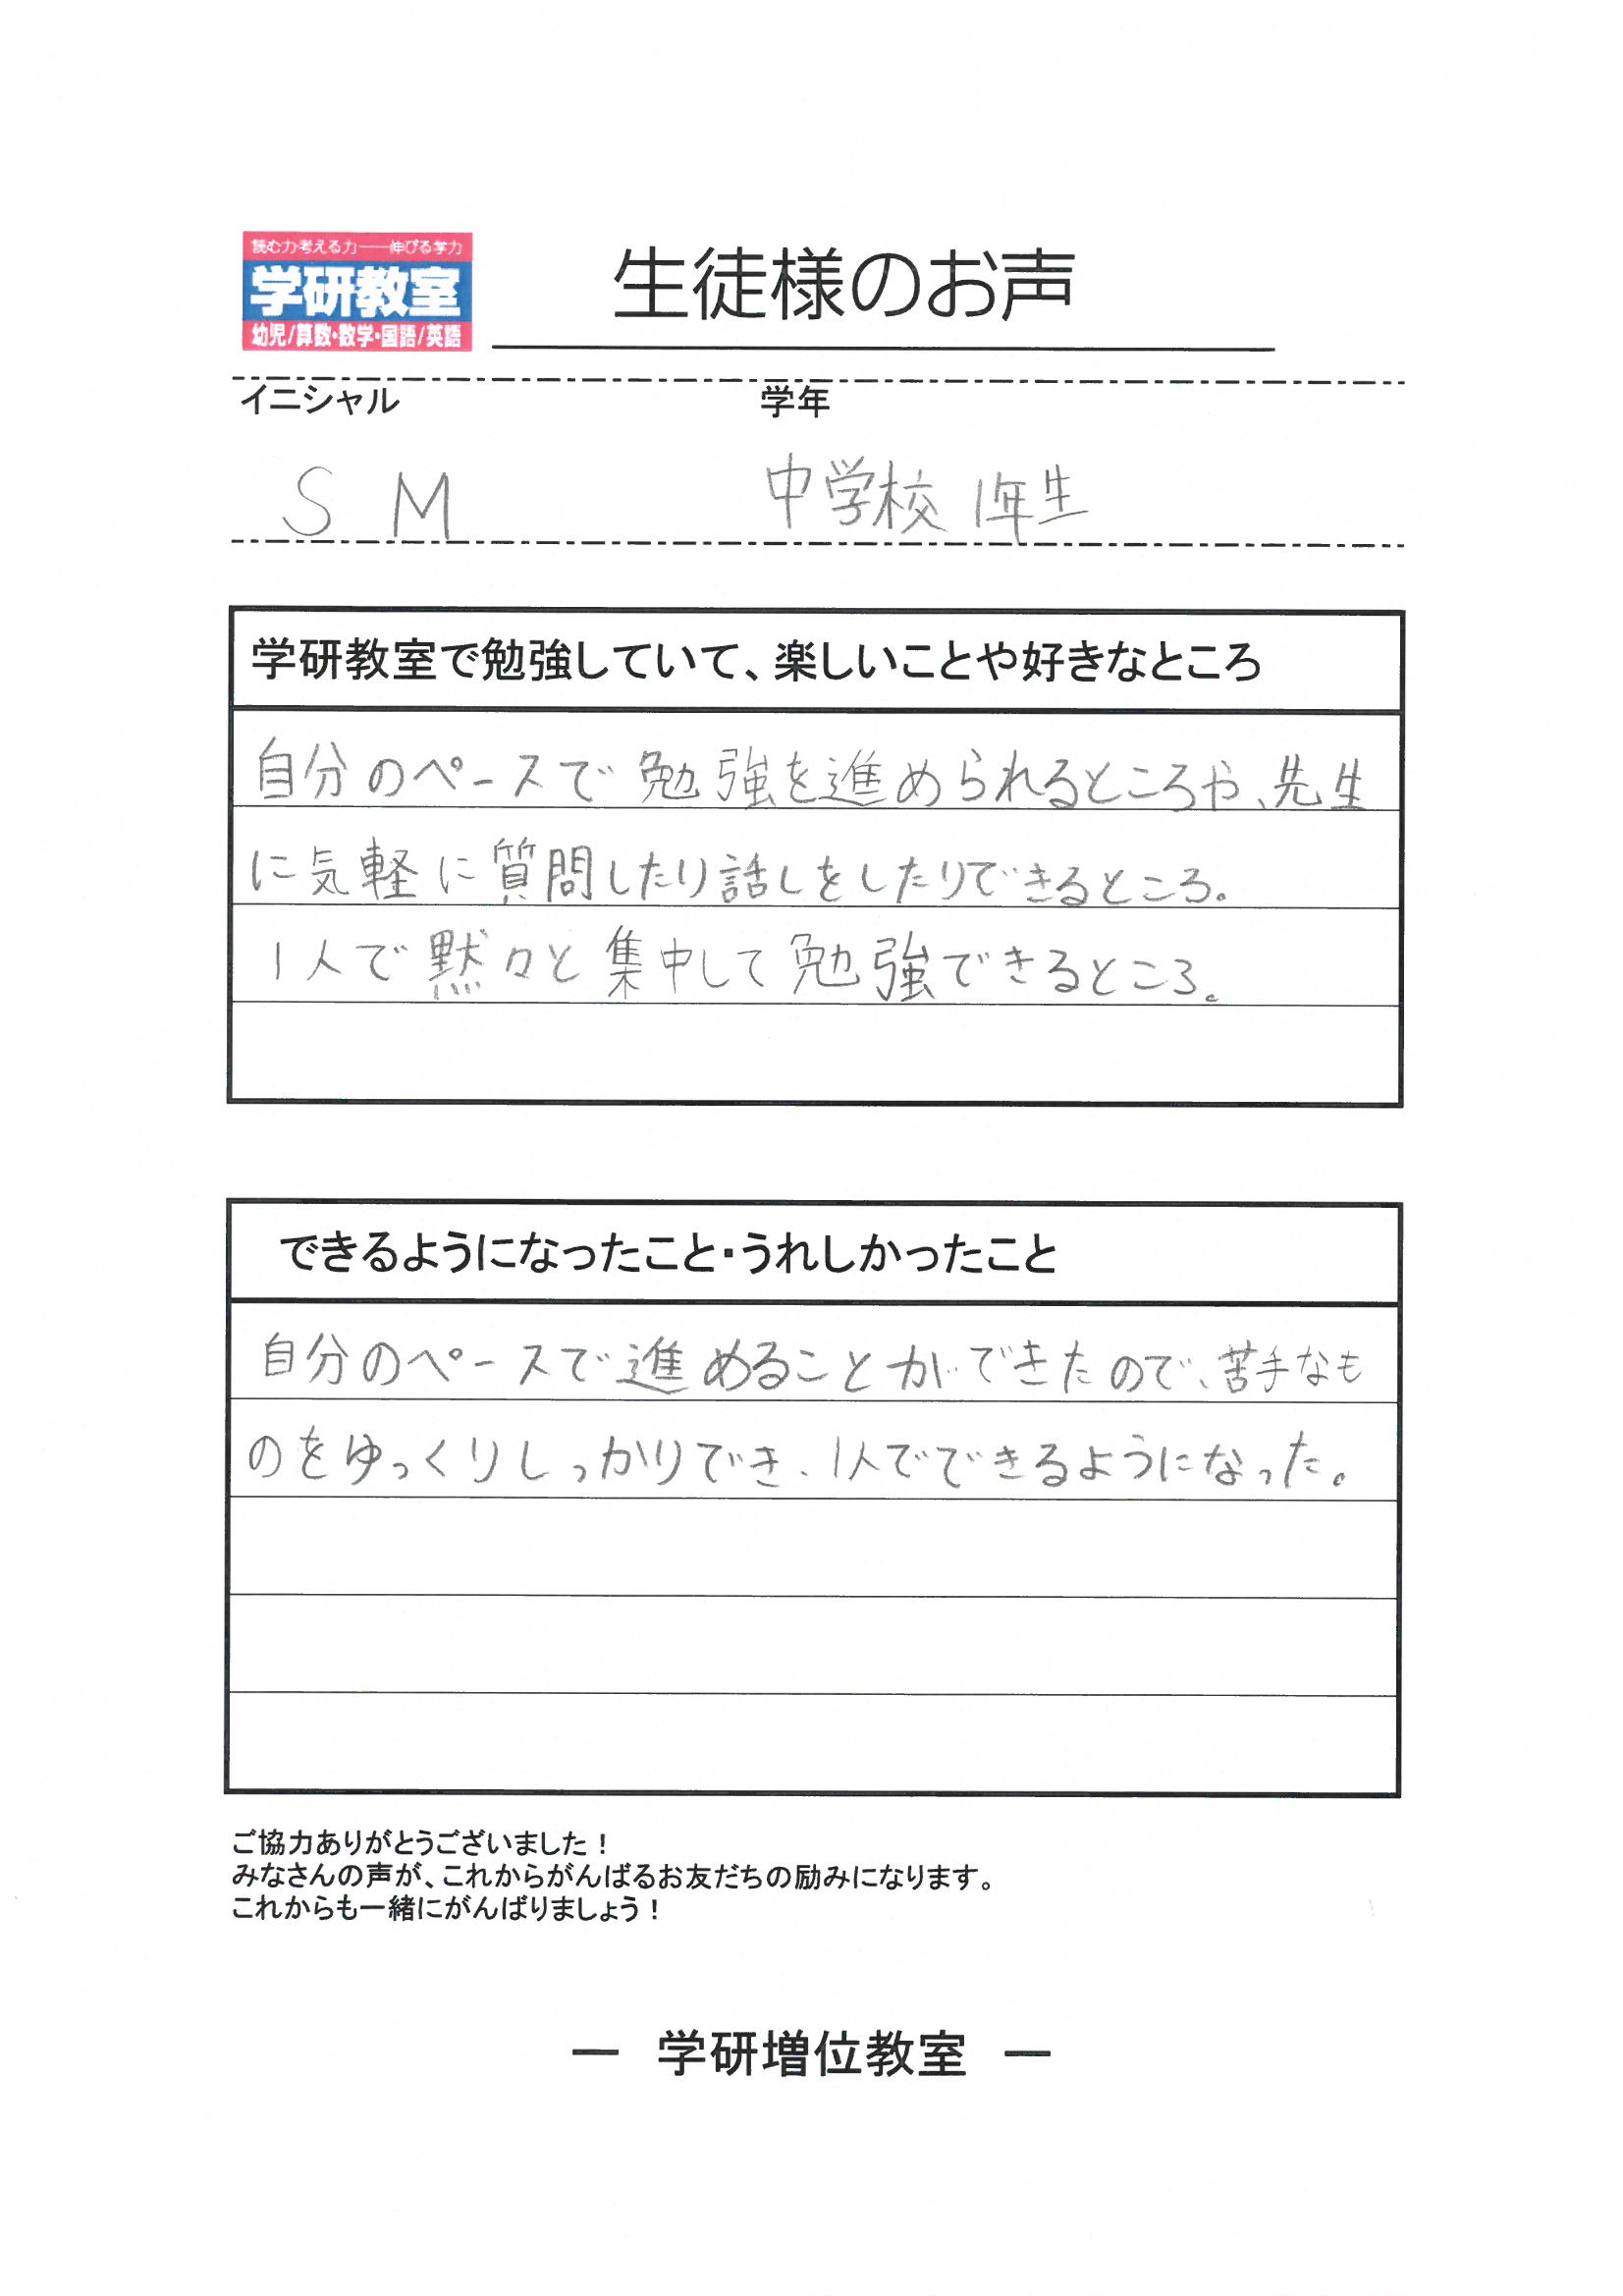 読む力考える力——伸びる学力
学研教室
幼児/算数・数学・国語/英語
生徒様のお声
イニシャル 学年
S M 中学校 1年生
学研教室で勉強していて、楽しいことや好きなところ
自分のペースで勉強を進められるところや、先生
に気軽に質問したり話しをしたりできるところ。
1人で黙々と集中して勉強できるところ。
できるようになったこと・うれしかったこと
自分のペースで進めることができたので、苦手なも
のをゆっくりしっかりでき、1人でできるようになった。
ご協力ありがとうございました！
みなさんの声が、これからがんばるお友だちの励みになります。
これからも一緒にがんばりましょう！
― 学研増位教室 ―